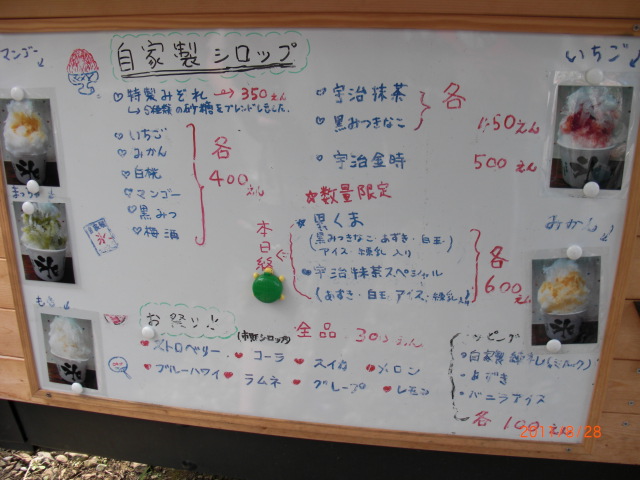 マンゴー
自家製シロップ
いちご
♡特製みぞれ→350えん
↳5種類の砂糖をブレンドしました。
♡いちご
♡みかん
♡白桃
♡マンゴー
♡黒みつ
♡梅酒
各
400えん
♡宇治抹茶
♡黒みつきなこ
各
450えん
♡宇治金時 500えん
☆数量限定
本日終
黒くま
(黒みつきなこ・あずき・白玉
アイス・練乳入り)
宇治抹茶スペシャル
(あずき・白玉・アイス・練乳入り)
各
600えん
まっちゃ
もも
みかん
氷
お祭り!!
(市販シロップ)
全品 300えん
ストロベリー・コーラ スイカ メロン
ブルーハワイ ラムネ グレープ レモン
トッピング
・自家製練乳(ミルク)
・あずき
・バニラアイス
各100えん